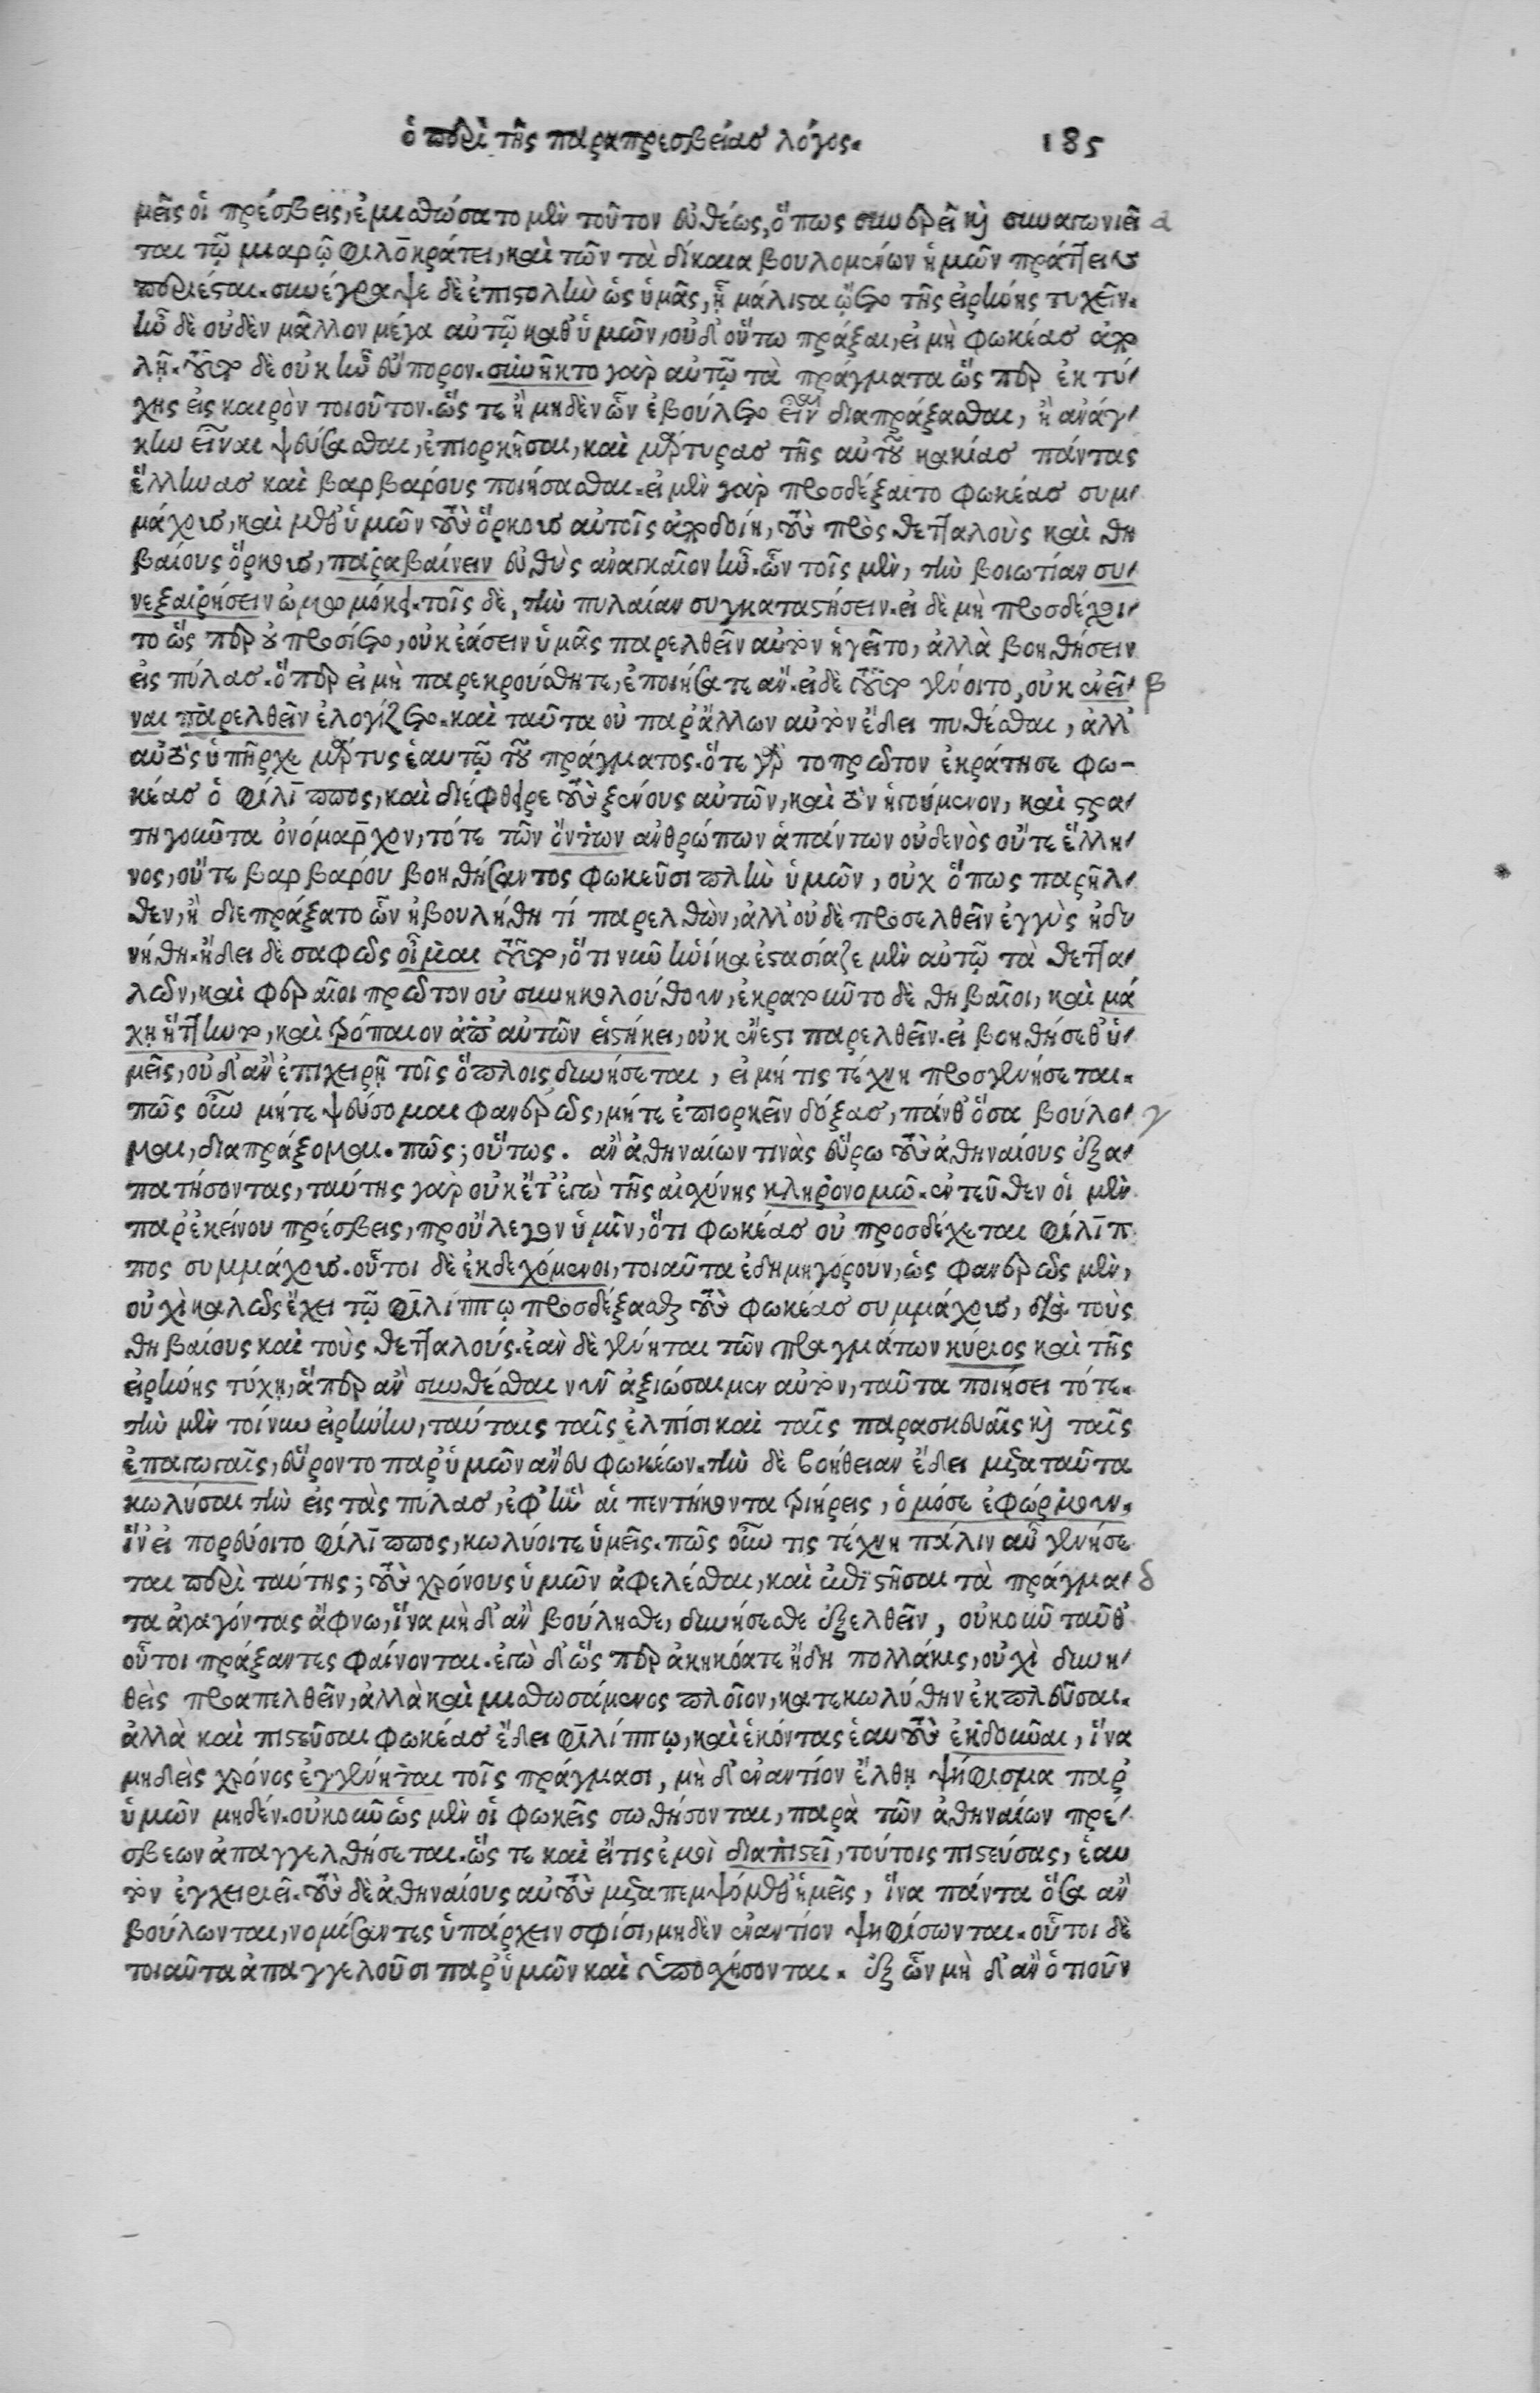 ὁ περὶ τῆς παραπρεσβείας λόγος. 185
μεῖς οἱ πρέσβεις, ἐμισθώσατο μὲν τοῦτον εὐθέως, ὅπως συνερεῖ καὶ συναγωνιεῖ α
ται τῷ μιαρῷ φιλοκράτει, καὶ τῶν τὰ δίκαια βουλομένων ἡμῶν πράττειν
περιέσται. συνέγραψε δὲ ἐπιστολὴν ὡς ὑμᾶς, ᾗ μάλιστα ᾤετο τῆς εἰρήνης τυχεῖν.
ἦν δὲ οὐδὲν μᾶλλον μέγα αὐτῷ καθ' ὑμῶν, οὐδ' οὕτω πράξαι, εἰ μὴ φωκέας ἀπο
λῇ. τοῦτο δὲ οὐκ ἦν εὔπορον. συνῆκτο γὰρ αὐτῷ τὰ πράγματα ὥς περ ἐκ τύ
χης εἰς καιρὸν τοιοῦτον. ὥς τε ἢ μηδὲν ὧν ἐβούλετο εἶναι διαπράξασθαι, ἢ ἀνάγ
κην εἶναι ψεύσασθαι, ἐπιορκῆσαι, καὶ μάρτυρας τῆς αὐτοῦ κακίας πάντας
ἕλληνας καὶ βαρβάρους ποιήσασθαι. εἰ μὲν γὰρ προσδέξαιτο φωκέας συμ
μάχους, καὶ μεθ' ὑμῶν τοὺς ὅρκους αὐτοῖς ἀποδοίη, τοὺς πρὸς θετταλοὺς καὶ θη
βαίους ὅρκους, παραβαίνειν εὐθὺς ἀναγκαῖον ἦν. ὧν τοῖς μὲν, τὴν βοιωτίαν συ
νεξαιρήσειν ὠμωμόκει. τοῖς δὲ, τὴν πυλαίαν συγκαταστήσειν. εἰ δὲ μὴ προσδέχοι
το ὥς περ οὐ προσίετο, οὐκ ἐάσειν ὑμᾶς παρελθεῖν αὐτὸν ἡγεῖτο, ἀλλὰ βοηθήσειν
εἰς πύλας. ὅπερ εἰ μὴ παρεκρούσθητε, ἐποιήσατε ἄν. εἰ δὲ τοῦτο γένοιτο, οὐκ ἐνεῖ β
ναι παρελθεῖν ἐλογίζετο. καὶ ταῦτα οὐ παρ' ἄλλων αὐτὸν ἔδει πυθέσθαι, ἀλλ'
αὐτὸς ὑπῆρχε μάρτυς ἑαυτῷ τοῦ πράγματος. ὅτε γὰρ τοπρῶτον ἐκράτησε φω
κέας ὁ φίλιππος, καὶ διέφθειρε τοὺς ξένους αὐτῶν, καὶ τὸν ἡγούμενον, καὶ στρα
τηγοῦντα ὀνόμαρχον, τότε τῶν ὄντων ἀνθρώπων ἁπάντων οὐδενὸς οὔτε ἕλλη
νος, οὔτε βαρβάρου βοηθήσαντος φωκεῦσι πλὴν ὑμῶν, οὐχ ὅπως παρῆλ
θεν, ἢ διεπράξατο ὧν ἠβουλήθη τί παρελθὼν, ἀλλ' οὐδὲ προσελθεῖν ἐγγὺς ἠδυ
νήθη. ᾔδει δὲ σαφῶς οἶμαι τοῦτο, ὅτι νῦν ἡνίκα ἐστασίαζε μὲν αὐτῷ τὰ θεττα
λῶν, καὶ φεραῖοι πρῶτον οὐ συνηκολούθουν, ἐκρατοῦντο δὲ θηβαῖοι, καὶ μά
χῃ ἥττηντο, καὶ τρόπαιον ἀπ' αὐτῶν εἱστήκει, οὐκ ἔνεστι παρελθεῖν. εἰ βοηθήσεθ' ὑ
μεῖς, οὐδ' ἂν ἐπιχειρῇ τοῖς ὅπλοις δυνήσεται, εἰ μή τις τέχνη προσγενήσεται.
πῶς οὖν μήτε ψεύσομαι φανερῶς, μήτε ἐπιορκεῖν δόξας, πάνθ' ὅσα βούλο γ
μαι, διαπράξομαι. πῶς; οὕτως. ἂν ἀθηναίων τινὰς εὕρω τοὺς ἀθηναίους ἐξα
πατήσοντας, ταύτης γὰρ οὐκ ἔτ' ἐγὼ τῆς αἰσχύνης κληρονομῶ. ἐντεῦθεν οἱ μὲν
παρ' ἐκείνου πρέσβεις, προὔλεγον ὑμῖν, ὅτι φωκέας οὐ προσδέχεται φίλιπ
πος συμμάχους. οὗτοι δὲ ἐκδεχόμενοι, τοιαῦτα ἐδημηγόρουν, ὡς φανερῶς μὲν,
οὐχὶ καλῶς ἔχει τῷ φιλίππῳ προσδέξασθαι τοὺς φωκέας συμμάχους, διὰ τοὺς
θηβαίους καὶ τοὺς θετταλούς. ἐὰν δὲ γένηται τῶν πραγμάτων κύριος καὶ τῆς
εἰρήνης τύχῃ, ἅπερ ἂν συνθέσθαι νῦν ἀξιώσαιμεν αὐτὸν, ταῦτα ποιήσει τότε.
τὴν μὲν τοίνυν εἰρήνην, ταύταις ταῖς ἐλπίσι καὶ ταῖς παρασκευαῖς καὶ ταῖς
ἐπαγωγαῖς, εὕροντο παρ' ὑμῶν ἄνευ φωκέων. τὴν δὲ βοήθειαν ἔδει μετὰ ταῦτα
κωλῦσαι τὴν εἰς τὰς πύλας, ἐφ' ἣν αἱ πεντήκοντα τριήρεις, ὁμόσε ἐφώρμουν.
ἵν' εἰ πορεύοιτο φίλιππος, κωλύοιτε ὑμεῖς. πῶς οὖν τις τέχνη πάλιν αὖ γενήσε
ται περὶ ταύτης; τοὺς χρόνους ὑμῶν ἀφελέσθαι, καὶ ἐπιστῆσαι τὰ πράγμα δ
τα ἀγαγόντας ἄφνω, ἵνα μὴ δ' ἂν βούλησθε, δυνήσεσθε ἐξελθεῖν, οὐκοῦν ταῦθ'
οὗτοι πράξαντες φαίνονται. ἐγὼ δ' ὥς περ ἀκηκόατε ἤδη πολλάκις, οὐχὶ δυνη
θεὶς προαπελθεῖν, ἀλλὰ καὶ μισθωσάμενος πλοῖον, κατεκωλύθην ἐκπλεῦσαι.
ἀλλὰ καὶ πιστεῦσαι φωκέας ἔδει φιλίππῳ, καὶ ἑκόντας ἑαυτοὺς ἐκδοῦναι, ἵνα
μηδεὶς χρόνος ἐγγένηται τοῖς πράγμασι, μὴ δ' ἐναντίον ἔλθῃ ψήφισμα παρ'
ὑμῶν μηδέν. οὐκοῦν ὡς μὲν οἱ φωκεῖς σωθήσονται, παρὰ τῶν ἀθηναίων πρέ
σβεων ἀπαγγελθήσεται. ὥς τε καὶ εἴ τις ἐμοὶ διαπιστεῖ, τούτοις πιστεύσας, ἑαυ
τὸν ἐγχειριεῖ. τοὺς δὲ ἀθηναίους αὐτοὺς μεταπεμψόμεθ' ἡμεῖς, ἵνα πάντα ὅσα ἂν
βούλωνται, νομίσαντες ὑπάρχειν σφίσι, μηδὲν ἐναντίον ψηφίσωνται. οὗτοι δὲ
τοιαῦτα ἀπαγγελοῦσι παρ' ὑμῶν καὶ ὑποσχήσονται. ἐξ ὧν μὴ δ' ἂν ὁτιοῦν